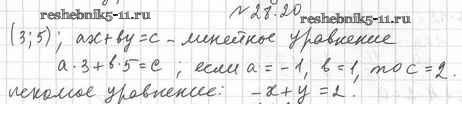 reshebnik5-11.ru № 28.20
reshebnik5-11.ru
(3;5); ax+by=c - линейное уравнение
a·3+b·5=c; если a=-1, b=1, то c=2.
искомое уравнение: -x+y=2.